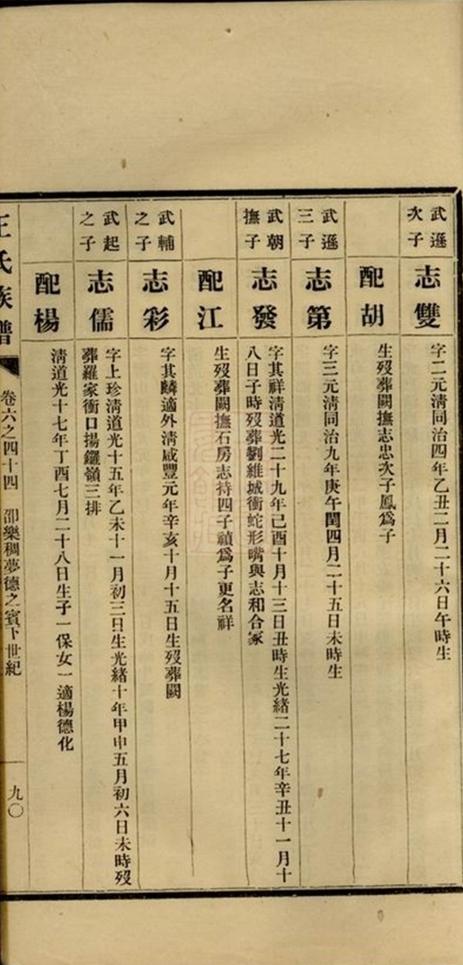 武遜次子
志雙
字二元清同治四年乙丑二月二十六日午時生
配胡
生歿葬闕撫志忠次子鳳爲子
武遜三子
志第
字三元清同治九年庚午閏四月二十五日未時生
武朝撫子
志發
字其祥清道光二十九年己酉十月十三日丑時生光緒二十七年辛丑十一月十
八日子時歿葬劉維城衝蛇形嘴與志和合冢
配江
生歿葬闕撫石房志持四子禎爲子更名祥
武輔之子
志彩
字其麟適外清咸豐元年辛亥十月十五日生歿葬闕
武起之子
志儒
字上珍清道光十五年乙未十一月初三日生光緒十年甲申五月初六日未時歿
葬羅家衝口揚鑼嶺三排
配楊
清道光十七年丁酉七月二十八日生子一保女一適楊德化
王氏族譜
卷六之四十四
卲樂稠夢德之賓下世紀
九〇